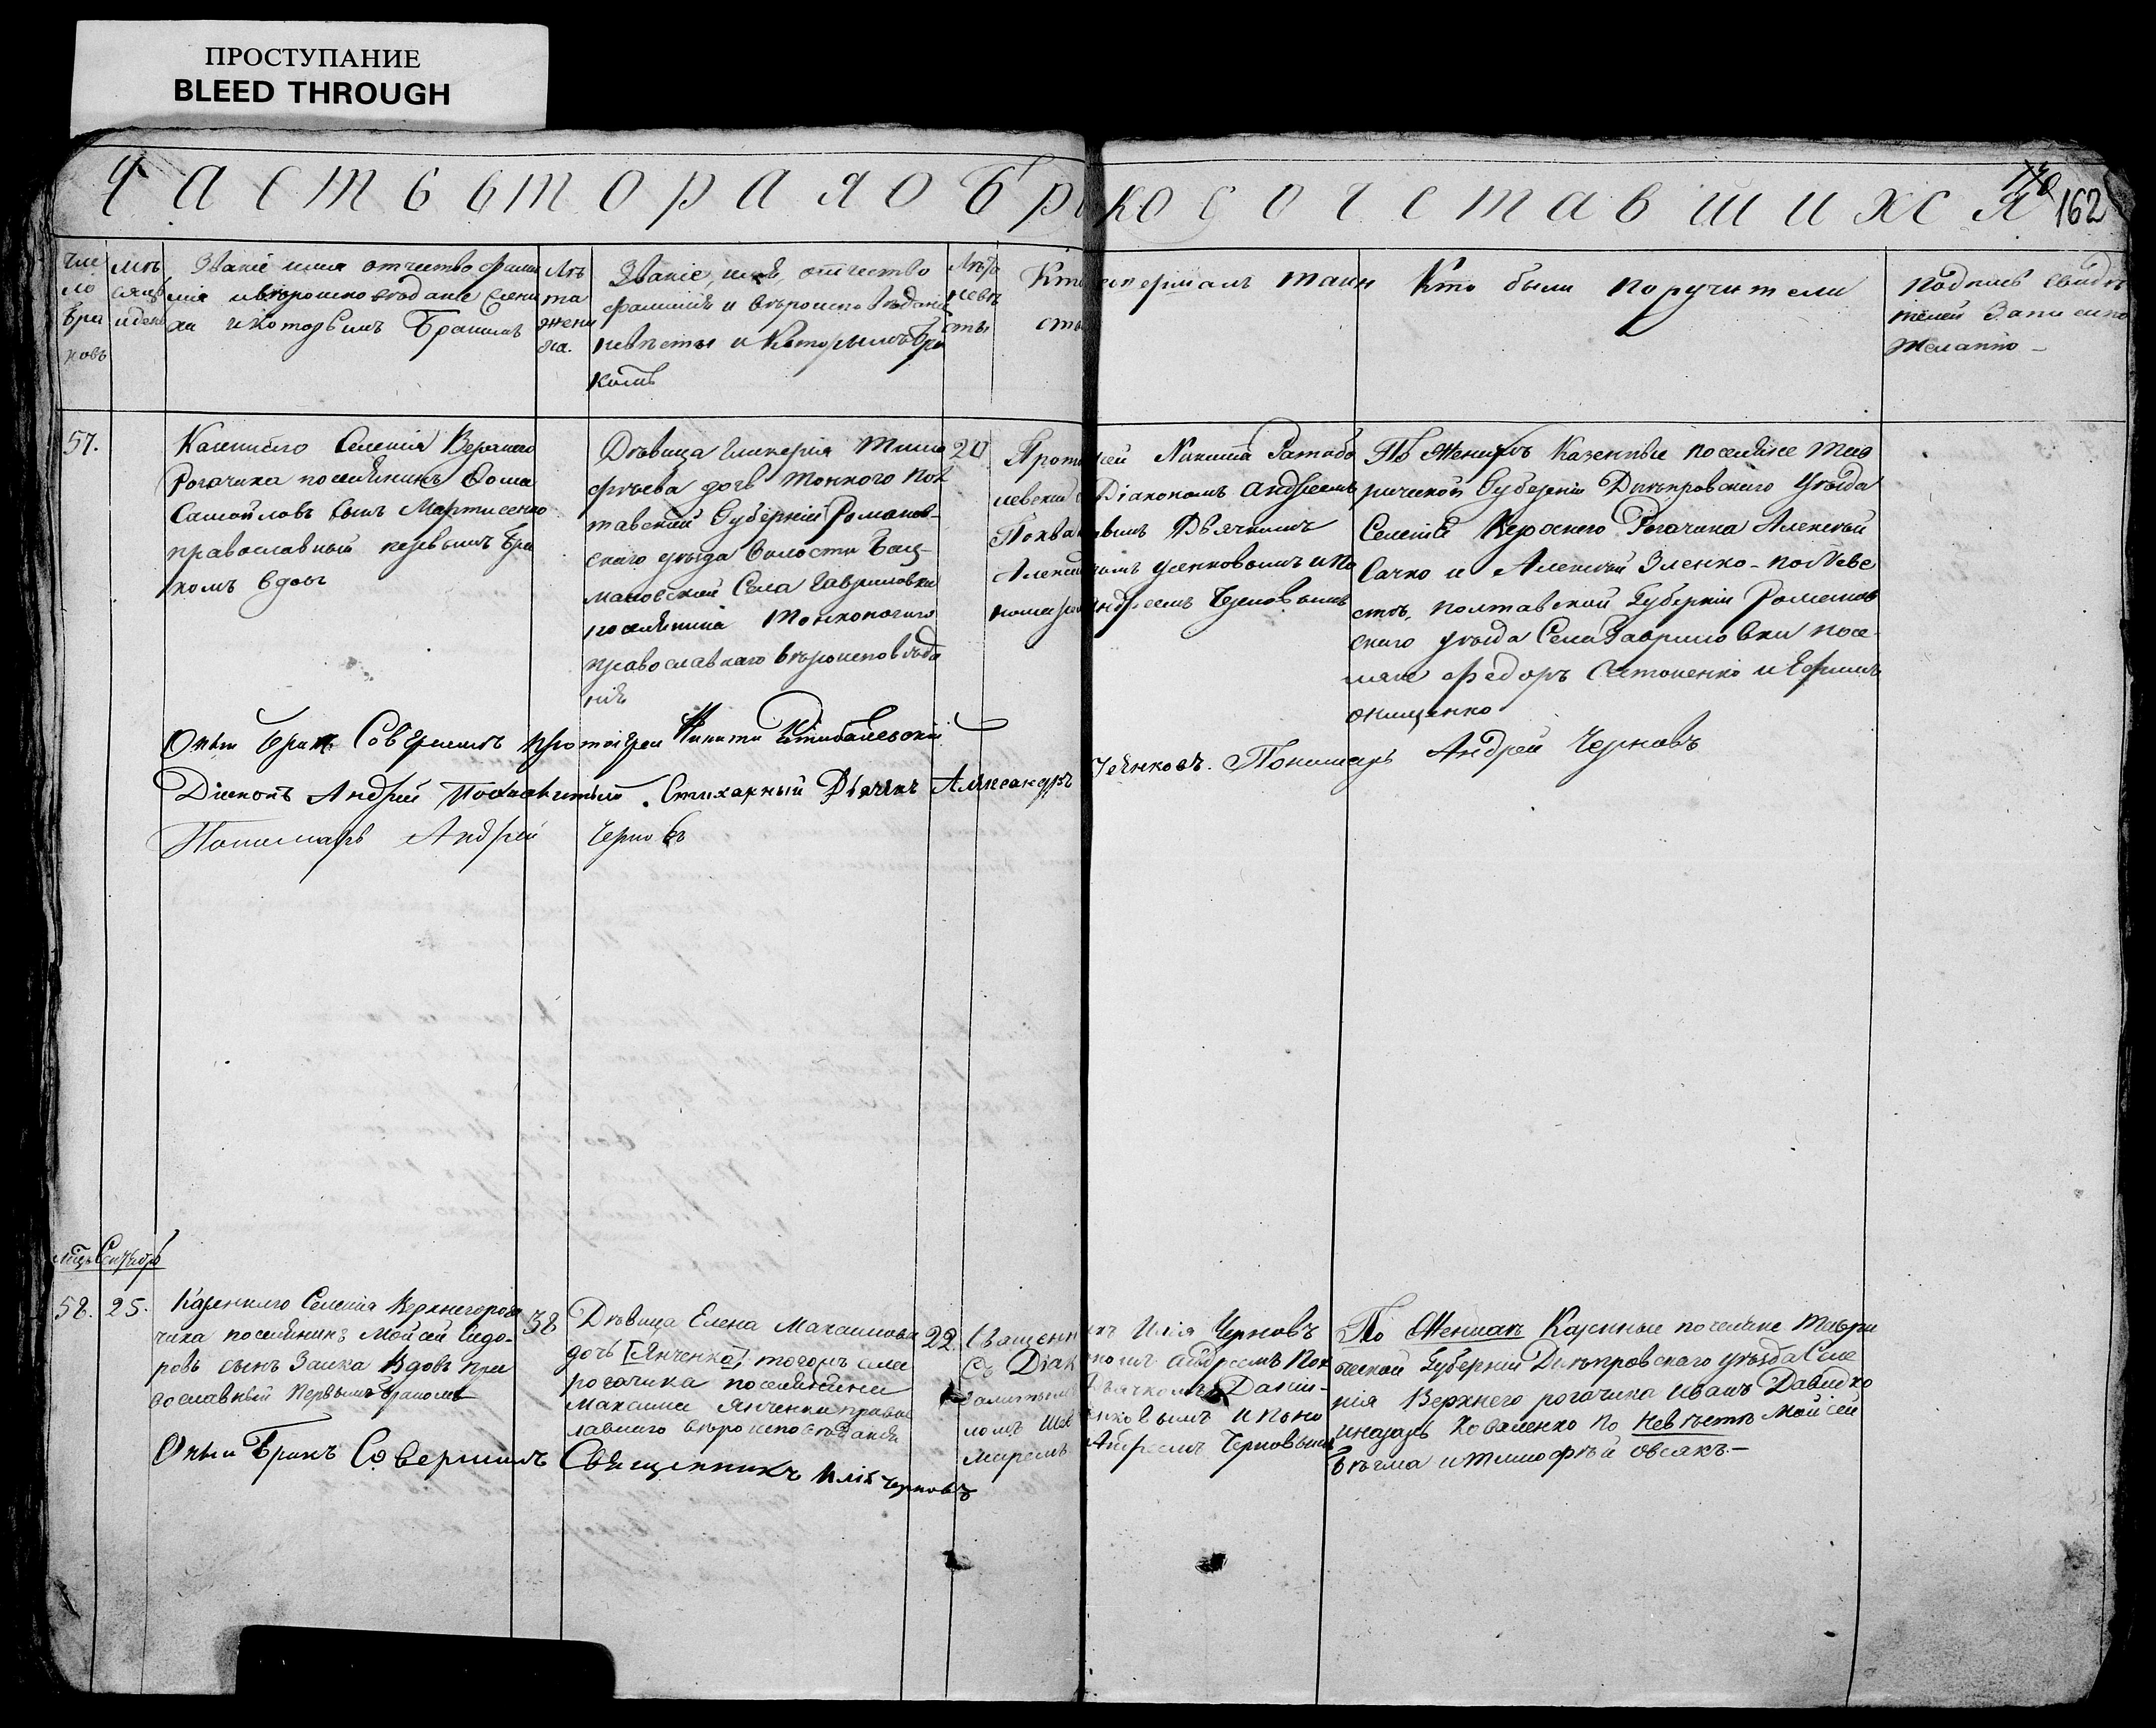 ПРОСТУПАНИЕ
BLEED THROUGH
Часть вторая о бракосочетавшихся
170
162
Число браковъ
Мѣсяцъ и день
Званіе имя отчество фами
лія и вѣроисповѣданіе жени
ха и которымъ бракомъ
Лѣта жениха.
Званіе, имя, отчество
фамилія и вѣроисповѣданіе
невѣсты и которымъ бра
комъ
Лѣта невѣсты
Кто совершалъ таин
ство
Кто были поручители
Подпись свидѣ
телей записи по
желанію
57.
Казеннаго Селенія Верхнего
Рогачика поселянинъ Фома
Самойловъ сынъ Мартисенко
православный первымъ бра
комъ вдовъ
Дѣвица Гликерія Тимо
фѣева дочь Тонкого Пол
тавской Губерніи Роменов-
скаго уѣзда волости
Села Гавриловки
поселянина Тонконогиго
православнаго вѣроисповѣда
нія
20
Протоіерей Никита
Діакономъ Андреемъ
Дьячкомъ
Андреемъ Черновымъ
По Женихѣ Казенные поселяне Тав
рической Губерніи Днѣпровского Уѣзда
Селенія Верхнего Рогачика Алексѣй
Сачко и Алексѣй Зленко - по Неве
стѣ, Полтавской Губерніи Роменов
скаго уѣзда Села Гавриловки посе
ляне Федоръ и Ефимъ
Онищенко
Оный бракъ Совершилъ протоіерей Никита
Діаконъ Андрей Похвалитый. Стихарный Дьячекъ Александръ Усенковъ. Пономарь Андрей Черновъ
Пономарь Андрей Черновъ
Мѣсц Сентябрь
58. 25.
Казеннаго Селенія Верхнегорога
чика поселянинъ Мойсей Сидо-
ровъ сынъ Заика Вдовъ пра
вославный первымъ бракомъ
38
Дѣвица Елена Максимова
дочь [Янченко] тогожъ села
рогачика поселянина
Максима Янченки правос
лавного вѣроисповѣданія
22.
Священникъ Илія Черновъ
Съ Діакономъ Андреемъ Пох
валитымъ Дьячкомъ Дании-
ломъ и поно
маремъ Андреемъ Черновымъ
По Женихѣ Казенные поселяне Таври
ческой Губерніи Днѣпровскаго уѣзда Селе
нія Верхнего рогачика Иванъ Давидко
и назаръ Коваленко по невѣстѣ Мойсей
и тимофѣй Овсякъ.-
Оный Бракъ Совершилъ Священникъ Илія Черновъ